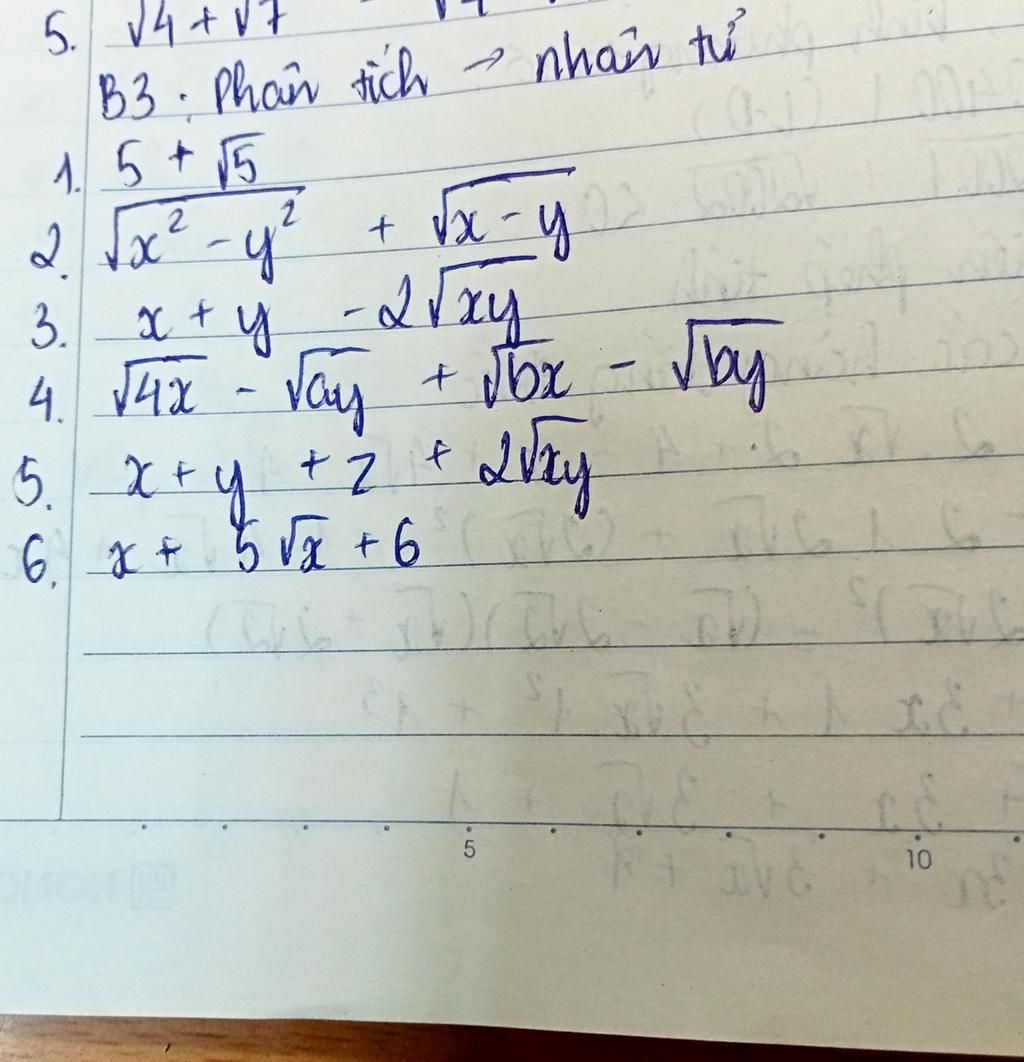 5. √4 + √7
B3 : Phân tích → nhân tử
1. 5 + √5
2. √x² - y² + √x - y
3. x + y - 2√xy
4. √4x - √ay + √bx - √by
5. x + y + z + 2√xy
6. x + 5√x + 6
5 10